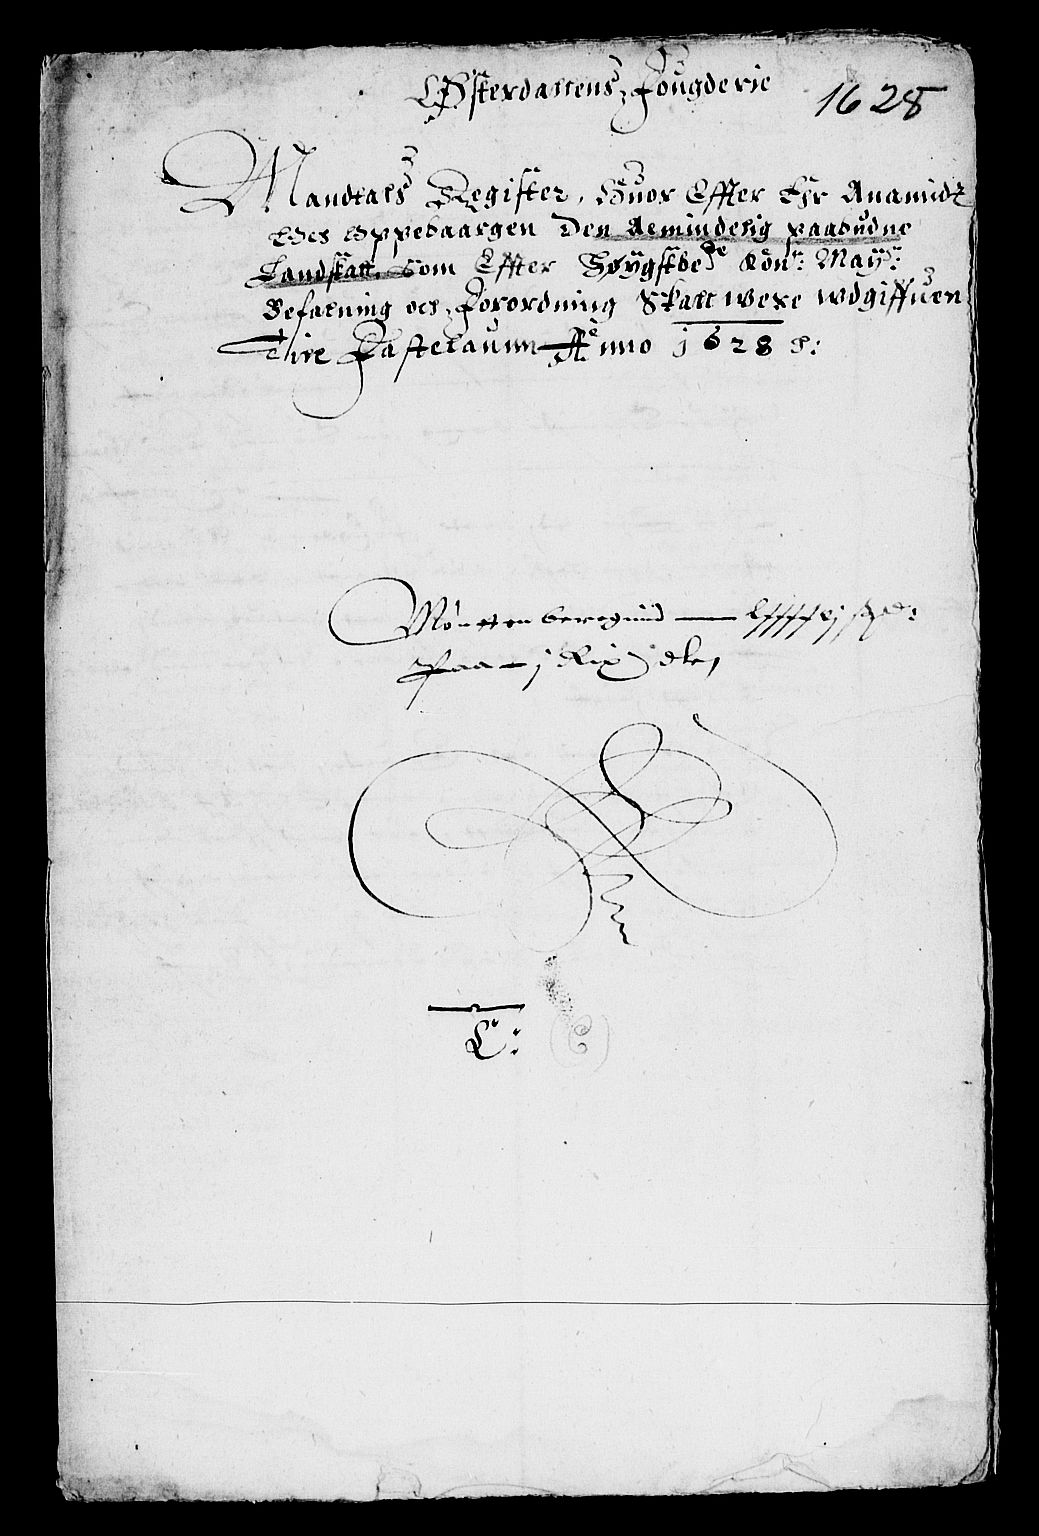 Østerdallens Fougderie 1628
Mandtals Register, Huor Effter Ehr Anamidt
Och Oppebaargen Den Aemindelig paabudne
Landskatt, Som Effter Høygstbe:de Kön: May:
Befalning och Forordning Skall were wdgiffuen
Till Fastelaunn Anno 1628
Möntten beregnid
Paa j Rix dlr,
L: